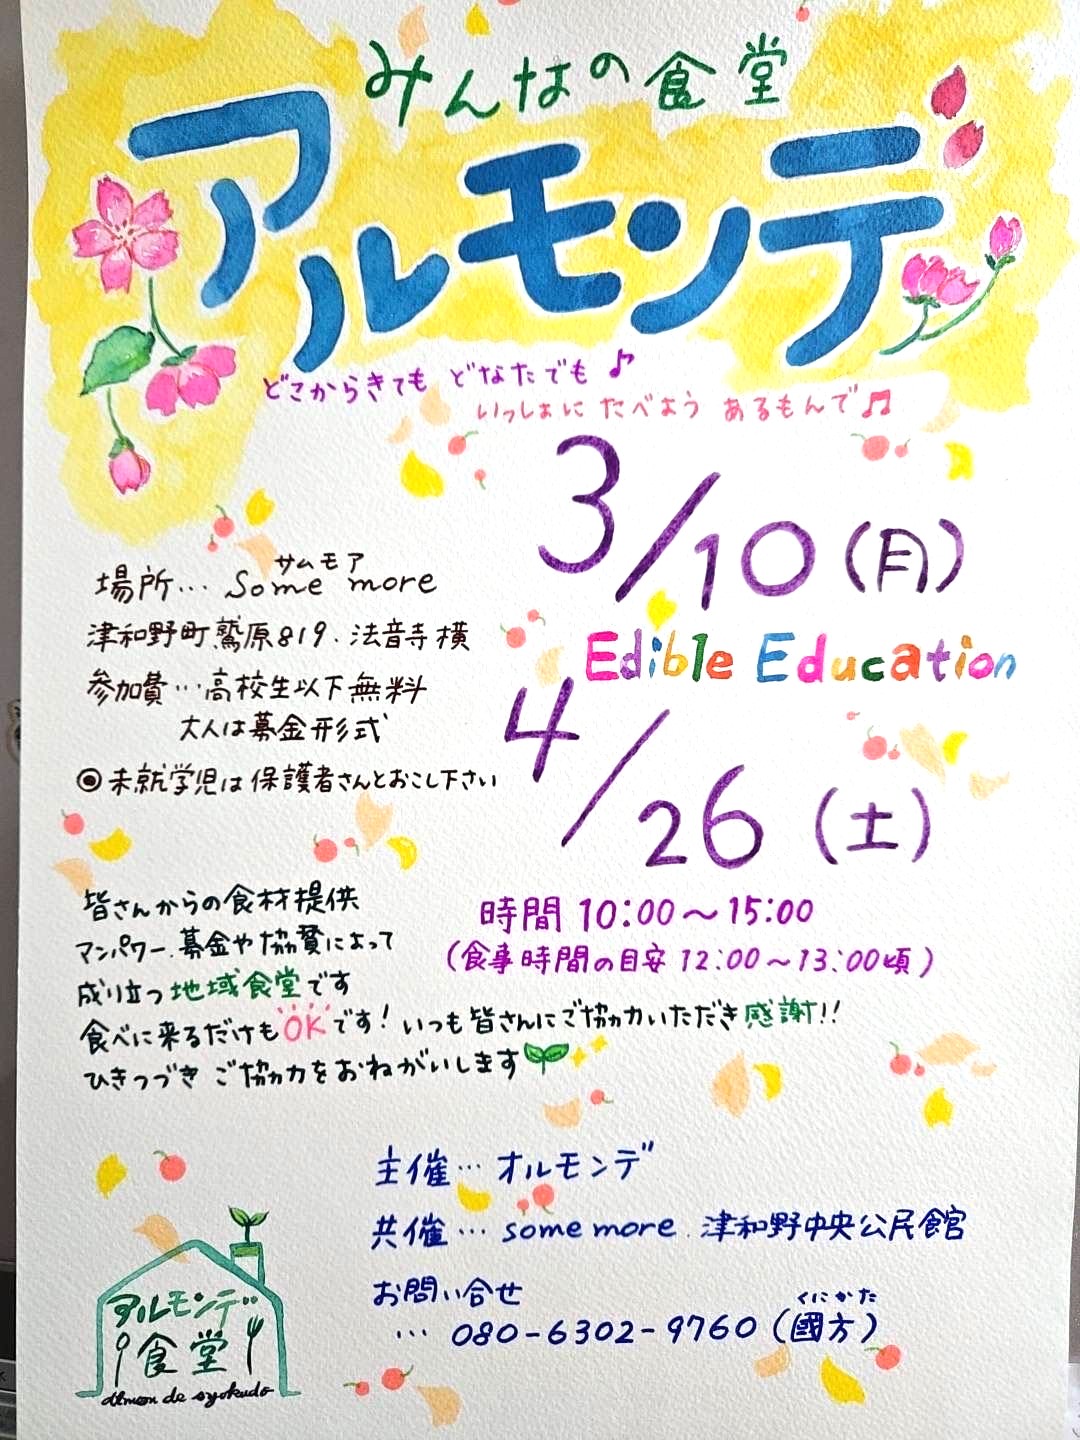 みんなの食堂
アルモンデ
どこからきても どなたでも♪
いっしょに たべよう あるもんで♫
3/10(月)
Edible Education
4/26(土)
サムモア
場所… Some more
津和野町鷲原819. 法音寺横
参加費…高校生以下無料
大人は募金形式
◎未就学児は保護者さんとおこし下さい
時間 10:00〜15:00
(食事時間の目安 12:00〜13:00頃)
皆さんからの食材提供
マンパワー.募金や協賛によって
成り立つ地域食堂です
食べに来るだけもOKです! いつも皆さんにご協力いただき感謝!!
ひきつづき ご協力をおねがいします
主催… オルモンデ
共催… some more. 津和野中央公民館
お問い合せ
くにかた
… 080-6302-9760(國方)
アルモンデ
食堂